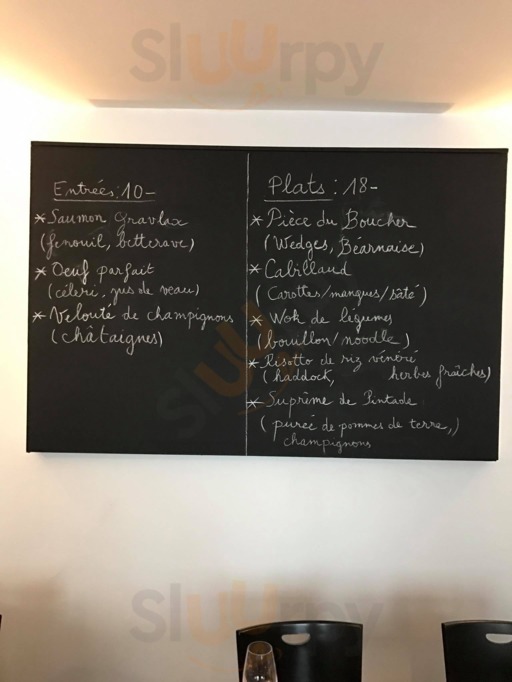 Sluurpy
Entrées: 10-
* Saumon gravlax
(fenouil, betterave)
* Oeuf parfait
(céleri, jus de veau)
* Velouté de champignons
(châtaignes)
Plats : 18-
* Pièce du Boucher
(Wedges, Béarnaise)
* Cabillaud
(Carottes/mangues/saté)
* Wok de légumes
(bouillon/noodle)
* Risotto de riz vénéré
(haddock, herbes fraîches)
* Suprème de Pintade
(purée de pommes de terre,)
champignons
Sluurpy
Sluurpy